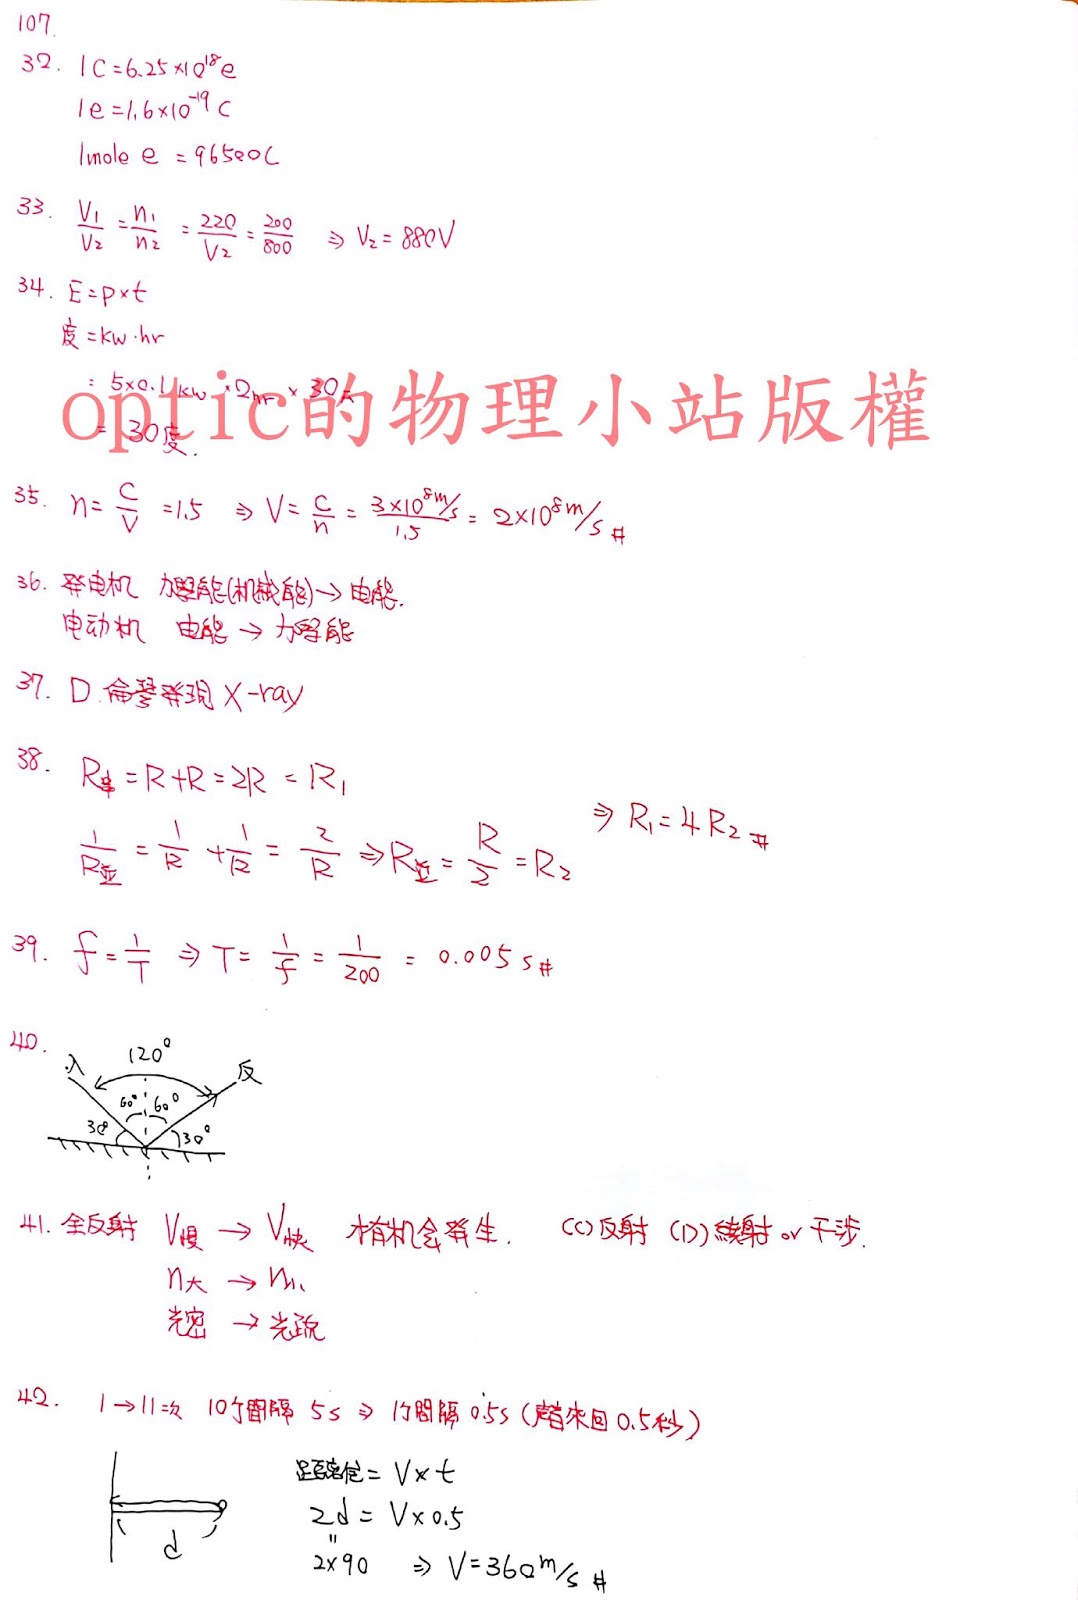 107.
32. 1C=6.25×10¹⁸e
1e=1.6×10⁻¹⁹C
1mole e = 96500C
33. V₁/V₂ = n₁/n₂ = 220/V₂ = 200/800 ⇒ V₂=880V
34. E=p×t
度=kw·hr
= 5×0.1kw × 2hr × 30天
= 30度.
optic的物理小站版權
35. n= C/V =1.5 ⇒ V= C/n = 3×10⁸m/s/1.5 = 2×10⁸m/s #
36. 發电机 力學能(机械能)→电能.
电动机 电能 → 力學能
37. D 倫琴發現 X-ray
38. R串=R+R=2R = R₁
1/R並 = 1/R + 1/R = 2/R ⇒ R並 = R/2 = R₂ ⇒ R₁=4R₂ #
39. f= 1/T ⇒ T= 1/f = 1/200 = 0.005 s #
40.
入 120° 反
60° 60°
30° 30°
41. 全反射 V慢 → V快 才有机会發生. (C)反射 (D)繞射 or 干涉.
n大 → n小
光密 → 光疏
42. 1→11次 10个間隔 5s ⇒ 1个間隔 0.5s (聲音來回0.5秒)
距離 = V×t
2d = V×0.5
d
2×90 ⇒ V=360m/s #